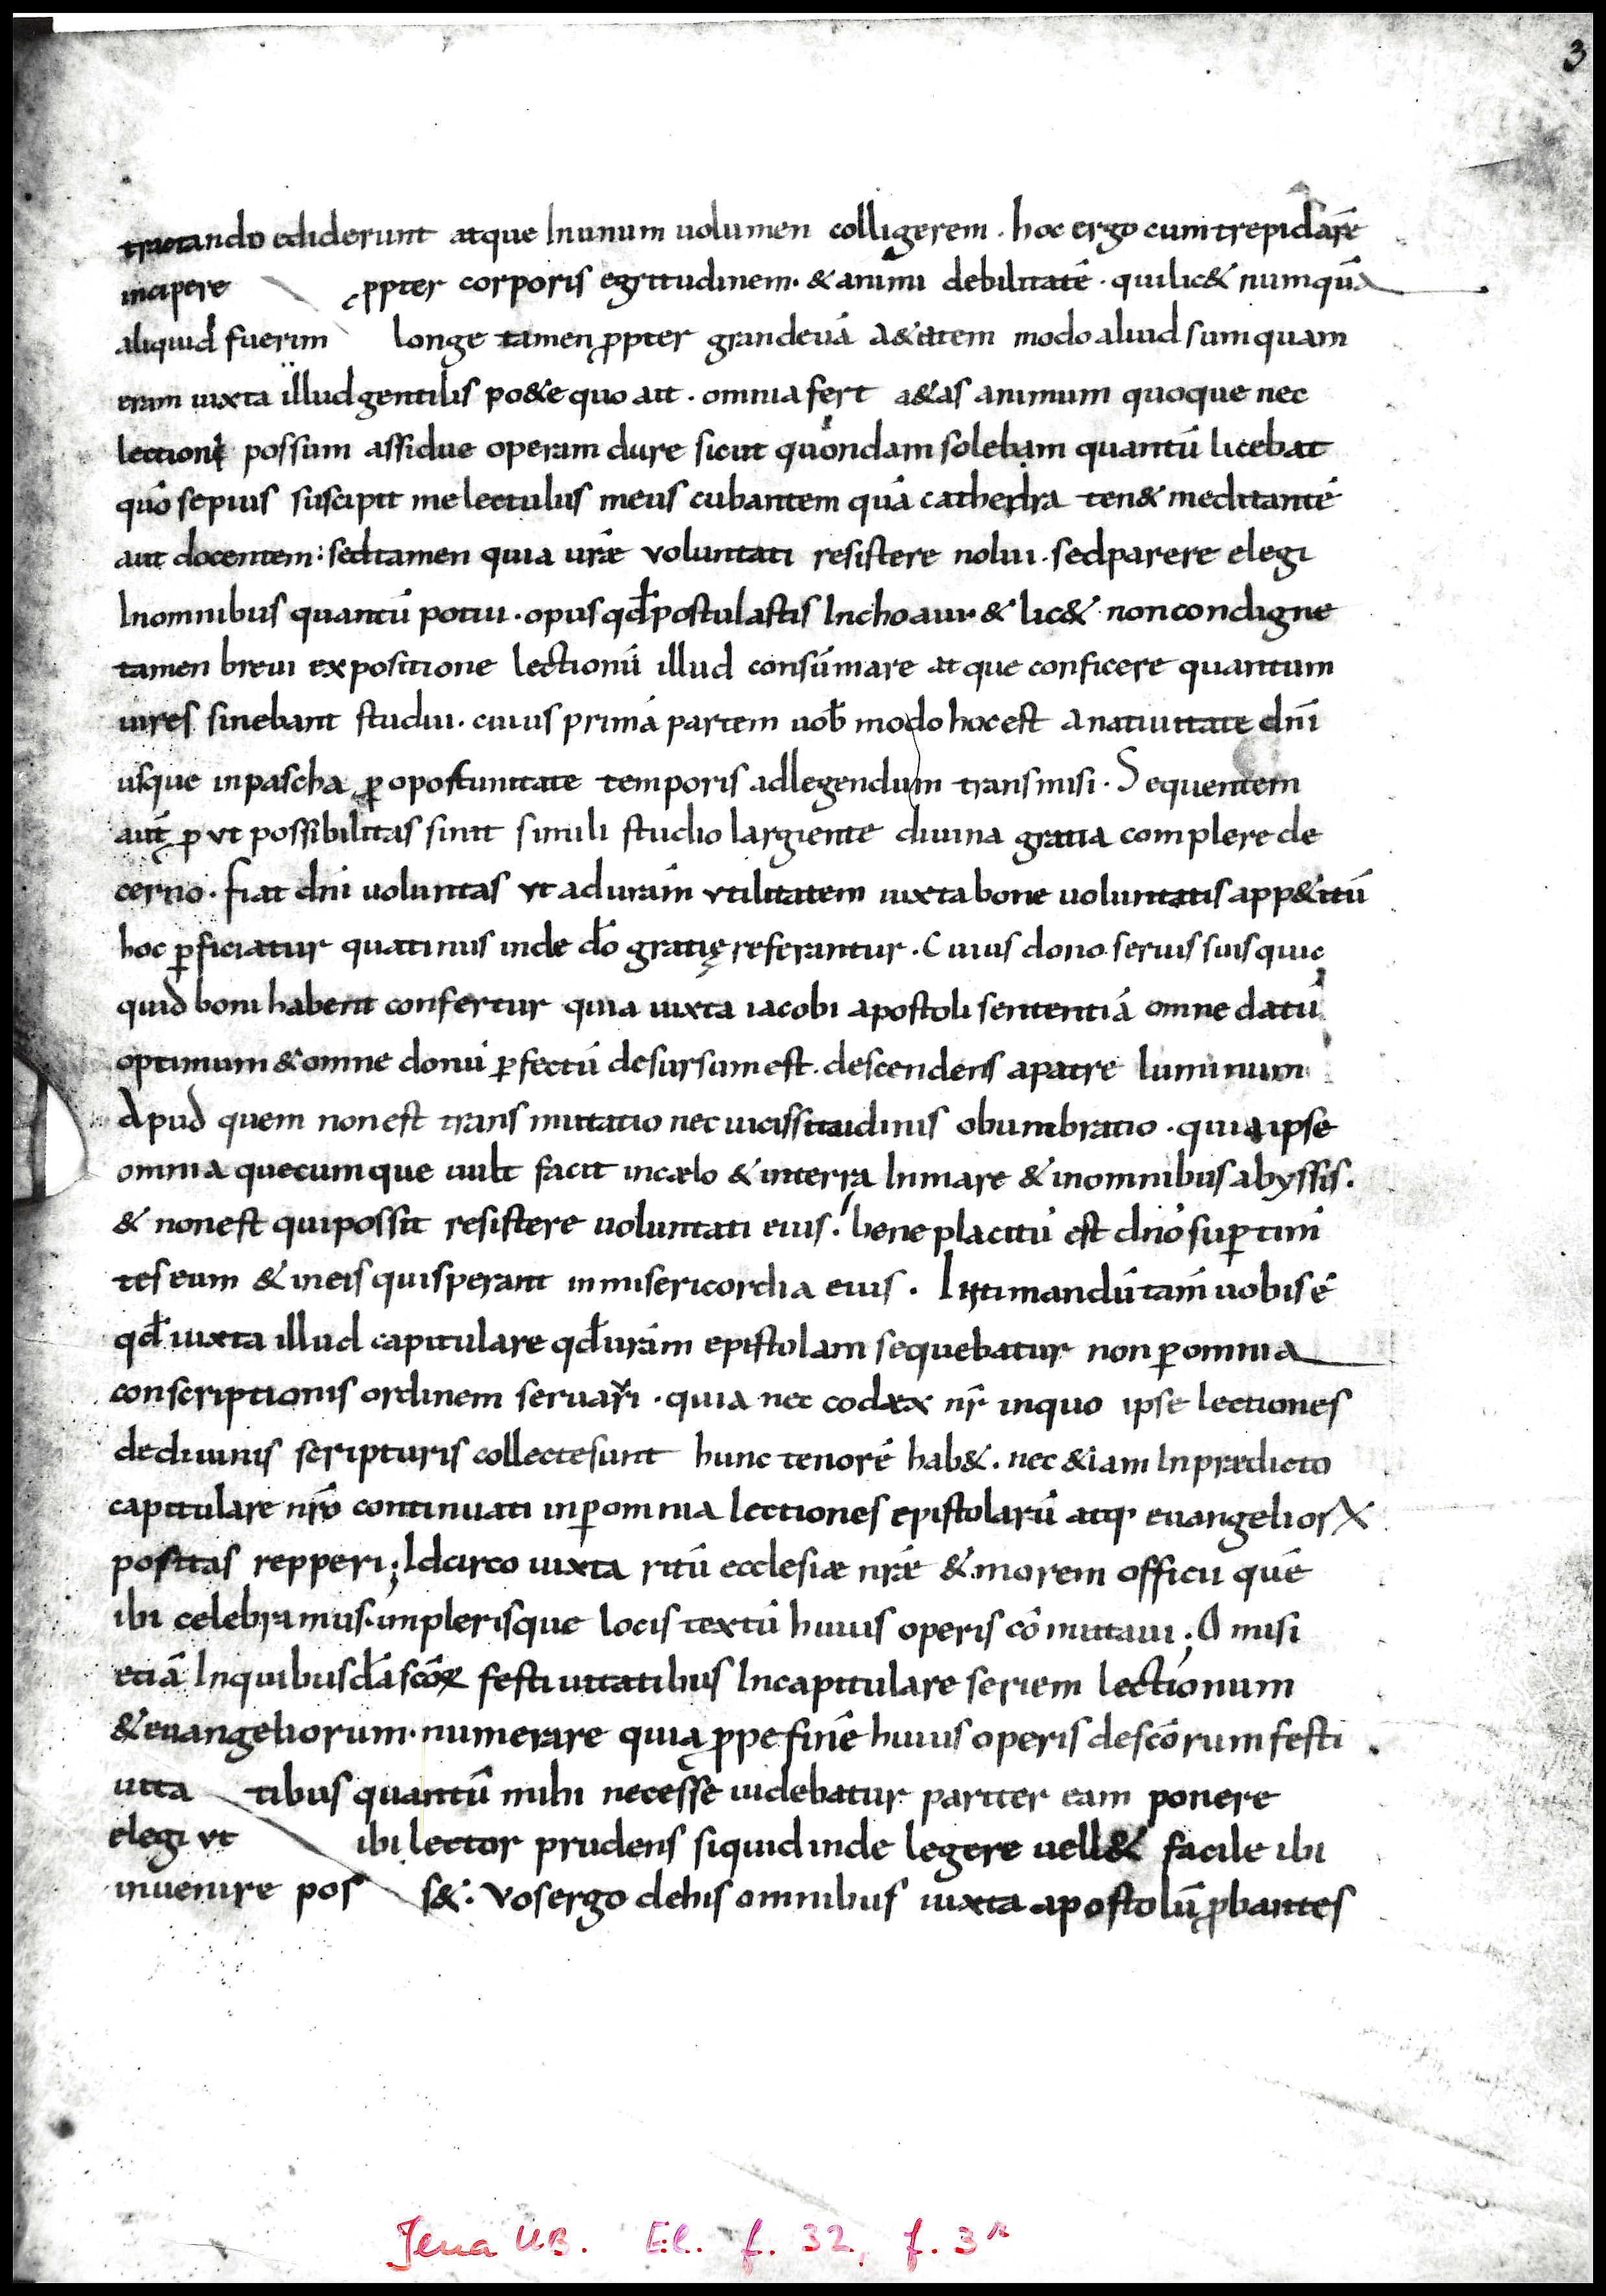 3
tractando ediderunt atque Inunum uolumen colligerem · hoc ergo cum trepidarē
incipere ꝓpter corporis egritudinem · & animi debilitatē · qui lic& numquā
aliquid fuerim longe tamen ꝓpter grandeuā a&atem modo aliud sum quam
eram iuxta illud gentilis po&e quo ait · omnia fert a&as animum quoque nec
lectioni possum assidue operam dare sicut quondam solebam quantū licebat
quō sepius suscipit me lectulus meus cubantem quā cathedra ten& meditantē
aut docentem : sed tamen quia urǣ voluntati resistere nolui · sed parere elegi
Inomnibus quantū potui · opus qđ postulastis Inchoaui · & lic& non condigne
tamen breui expositione lectionū illud consūmare atque conficere quantum
uires sinebant studui · cuius primā partem uob̄ modo hoc est a natiuitate dn̄i
usque in pascha ꝑ oportunitate temporis ad legendum transmisi · Sequentem
aut̄ ꝓ vt possibilitas sinit simili studio largiente diuina gratia complere de
cerno · fiat dn̄i uoluntas vt ad urām vtilitatem iuxta bone uoluntatis app&itū
hoc ꝑficiatur quatinus inde dō gratię referantur · Cuius dono seruis suis quic
quid boni habent confertur quia iuxta iacobi apostoli sententiā omne datū
optimum & omne donū ꝑfectū desursum est · descendens a patre luminum
Apud quem non est transmutatio nec uicissitudinis obumbratio · quia ipse
omnia quecumque uult facit in cælo & in terra In mare & in omnibus abyssis ·
& non est qui possit resistere uoluntati eius · bene placitū est dn̄o suꝑ timē
tes eum & in eis qui sperant in misericordia eius · Intimandū tam̄ uobis ē
qđ iuxta illud capitulare qđ urām epistolam sequebatur non ꝑ omnia
conscriptionis ordinem seruari · quia nec codex nr̄ in quo ipse lectiones
de diuinis scripturis collecte sunt hunc tenorē hab& · nec &iam In prædicto
capitulare nr̄o continuati in ꝑ omnia lectiones epistolarū atq· euangelioꝝ
positas repperi ; Idcirco iuxta ritū ecclesiæ nrǣ & morem officii quē
ibi celebramus · in plerisque locis textū huius operis cōmutaui ; Omisi
etiā In quibusdā scōꝝ festiuitatibus In capitulare seriem lectionum
& euangeliorum · numerare quia ꝓpe finē huius operis de scōrum festi
uita tibus quantū mihi necesse uidebatur pariter eam ponere
elegi vt ibi lector prudens si quid inde legere uell& facile ibi
inuenire pos s& · vos ergo de his omnibus iuxta apostolū ꝓbantes
Jena UB. El. f. 32, f. 3r